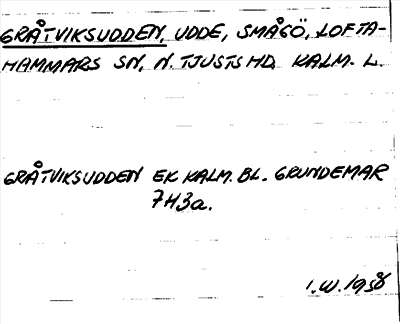 GRÅTVIKSUDDEN, UDDE, SMÅGÖ, LOFTA-
HAMMARS SN, N. TJUSTS HD, KALM. L.
GRÅTVIKSUDDEN EK KALM. BL. GRUNDEMAR
7H3a.
I.W. 1958